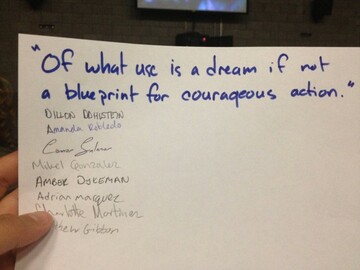 "Of what use is a dream if not
a blueprint for courageous action."
DILLON DOHLSTEIN
Amanda Robledo
Mikel Gonzalez
AMBER DYKEMAN
Adrian Marquez
Charlotte Martinez
Gibbon